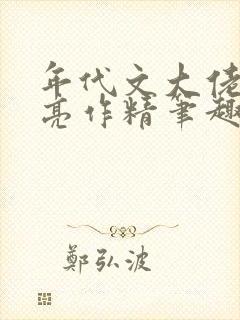 年代文大佬
亮作精笔趣
鄭弘波